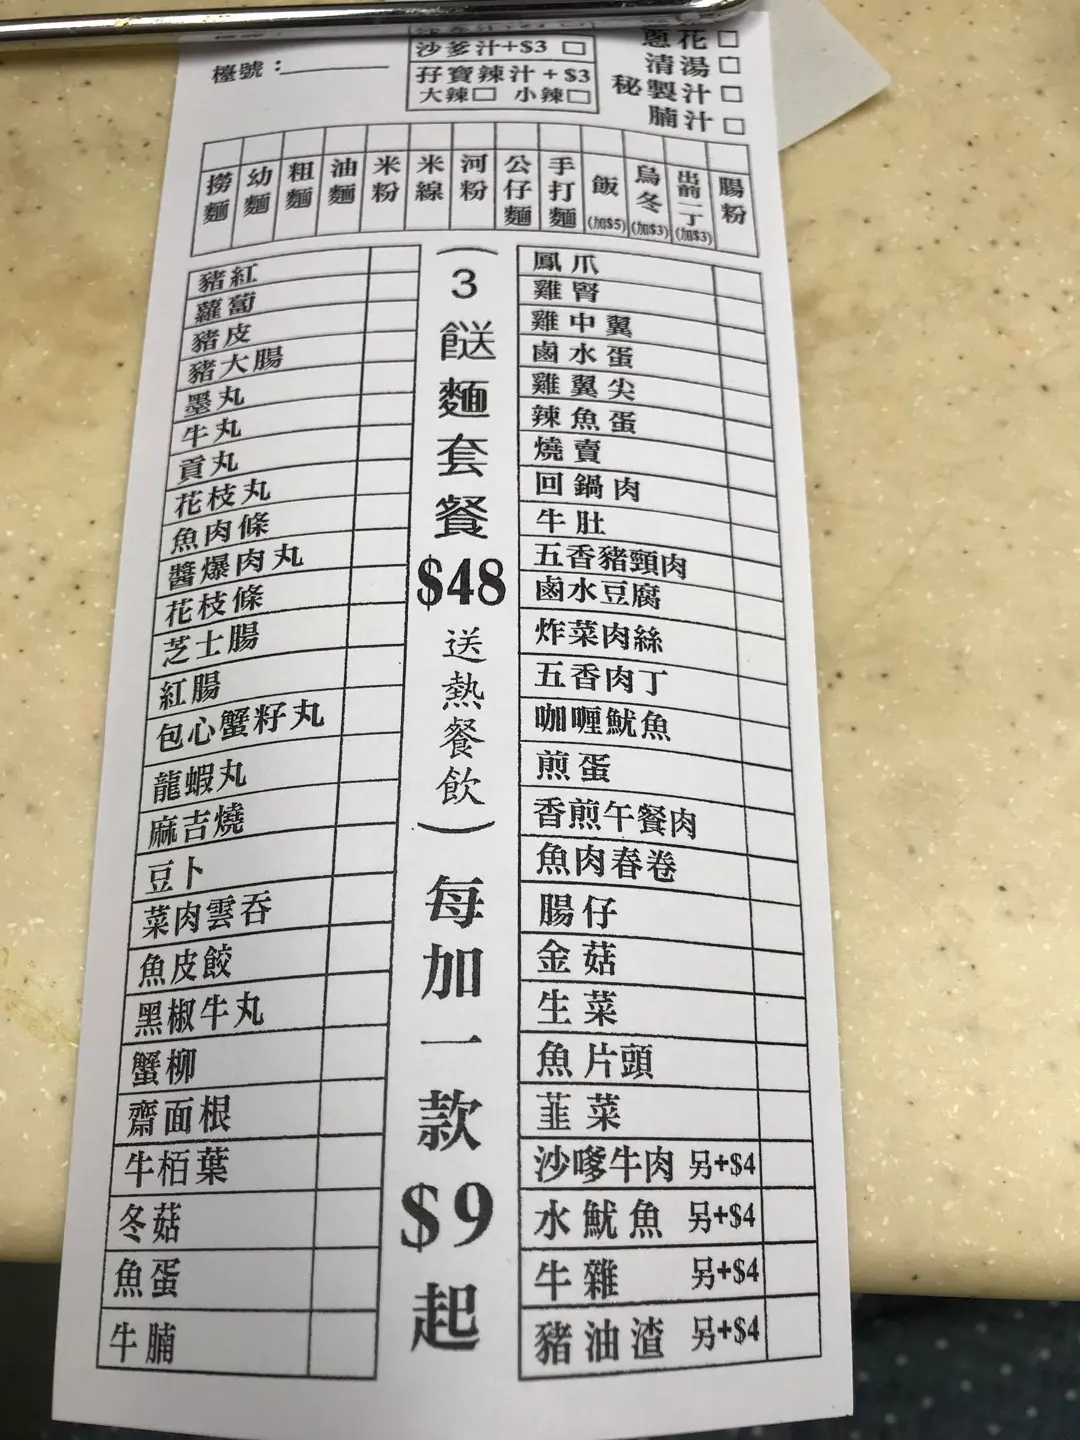 檯號：
沙爹汁+$3 □
孖寶辣汁+$3
大辣□ 小辣□
蔥花□
清湯□
秘製汁□
腩汁□
撈麵
幼麵
粗麵
油麵
米粉
米線
河粉
公仔麵
手打麵
飯(加$5)
烏冬(加$3)
出前一丁(加$3)
腸粉
豬紅
蘿蔔
豬皮
豬大腸
墨丸
牛丸
貢丸
花枝丸
魚肉條
醬爆肉丸
花枝條
芝士腸
紅腸
包心蟹籽丸
龍蝦丸
麻吉燒
豆卜
菜肉雲吞
魚皮餃
黑椒牛丸
蟹柳
齋面根
牛栢葉
冬菇
魚蛋
牛腩
(3餸麵套餐$48送熱餐飲)每加一款$9起
鳳爪
雞腎
雞中翼
鹵水蛋
雞翼尖
辣魚蛋
燒賣
回鍋肉
牛肚
五香豬頸肉
鹵水豆腐
炸菜肉絲
五香肉丁
咖喱魷魚
煎蛋
香煎午餐肉
魚肉春卷
腸仔
金菇
生菜
魚片頭
韮菜
沙嗲牛肉 另+$4
水魷魚 另+$4
牛雜 另+$4
豬油渣 另+$4